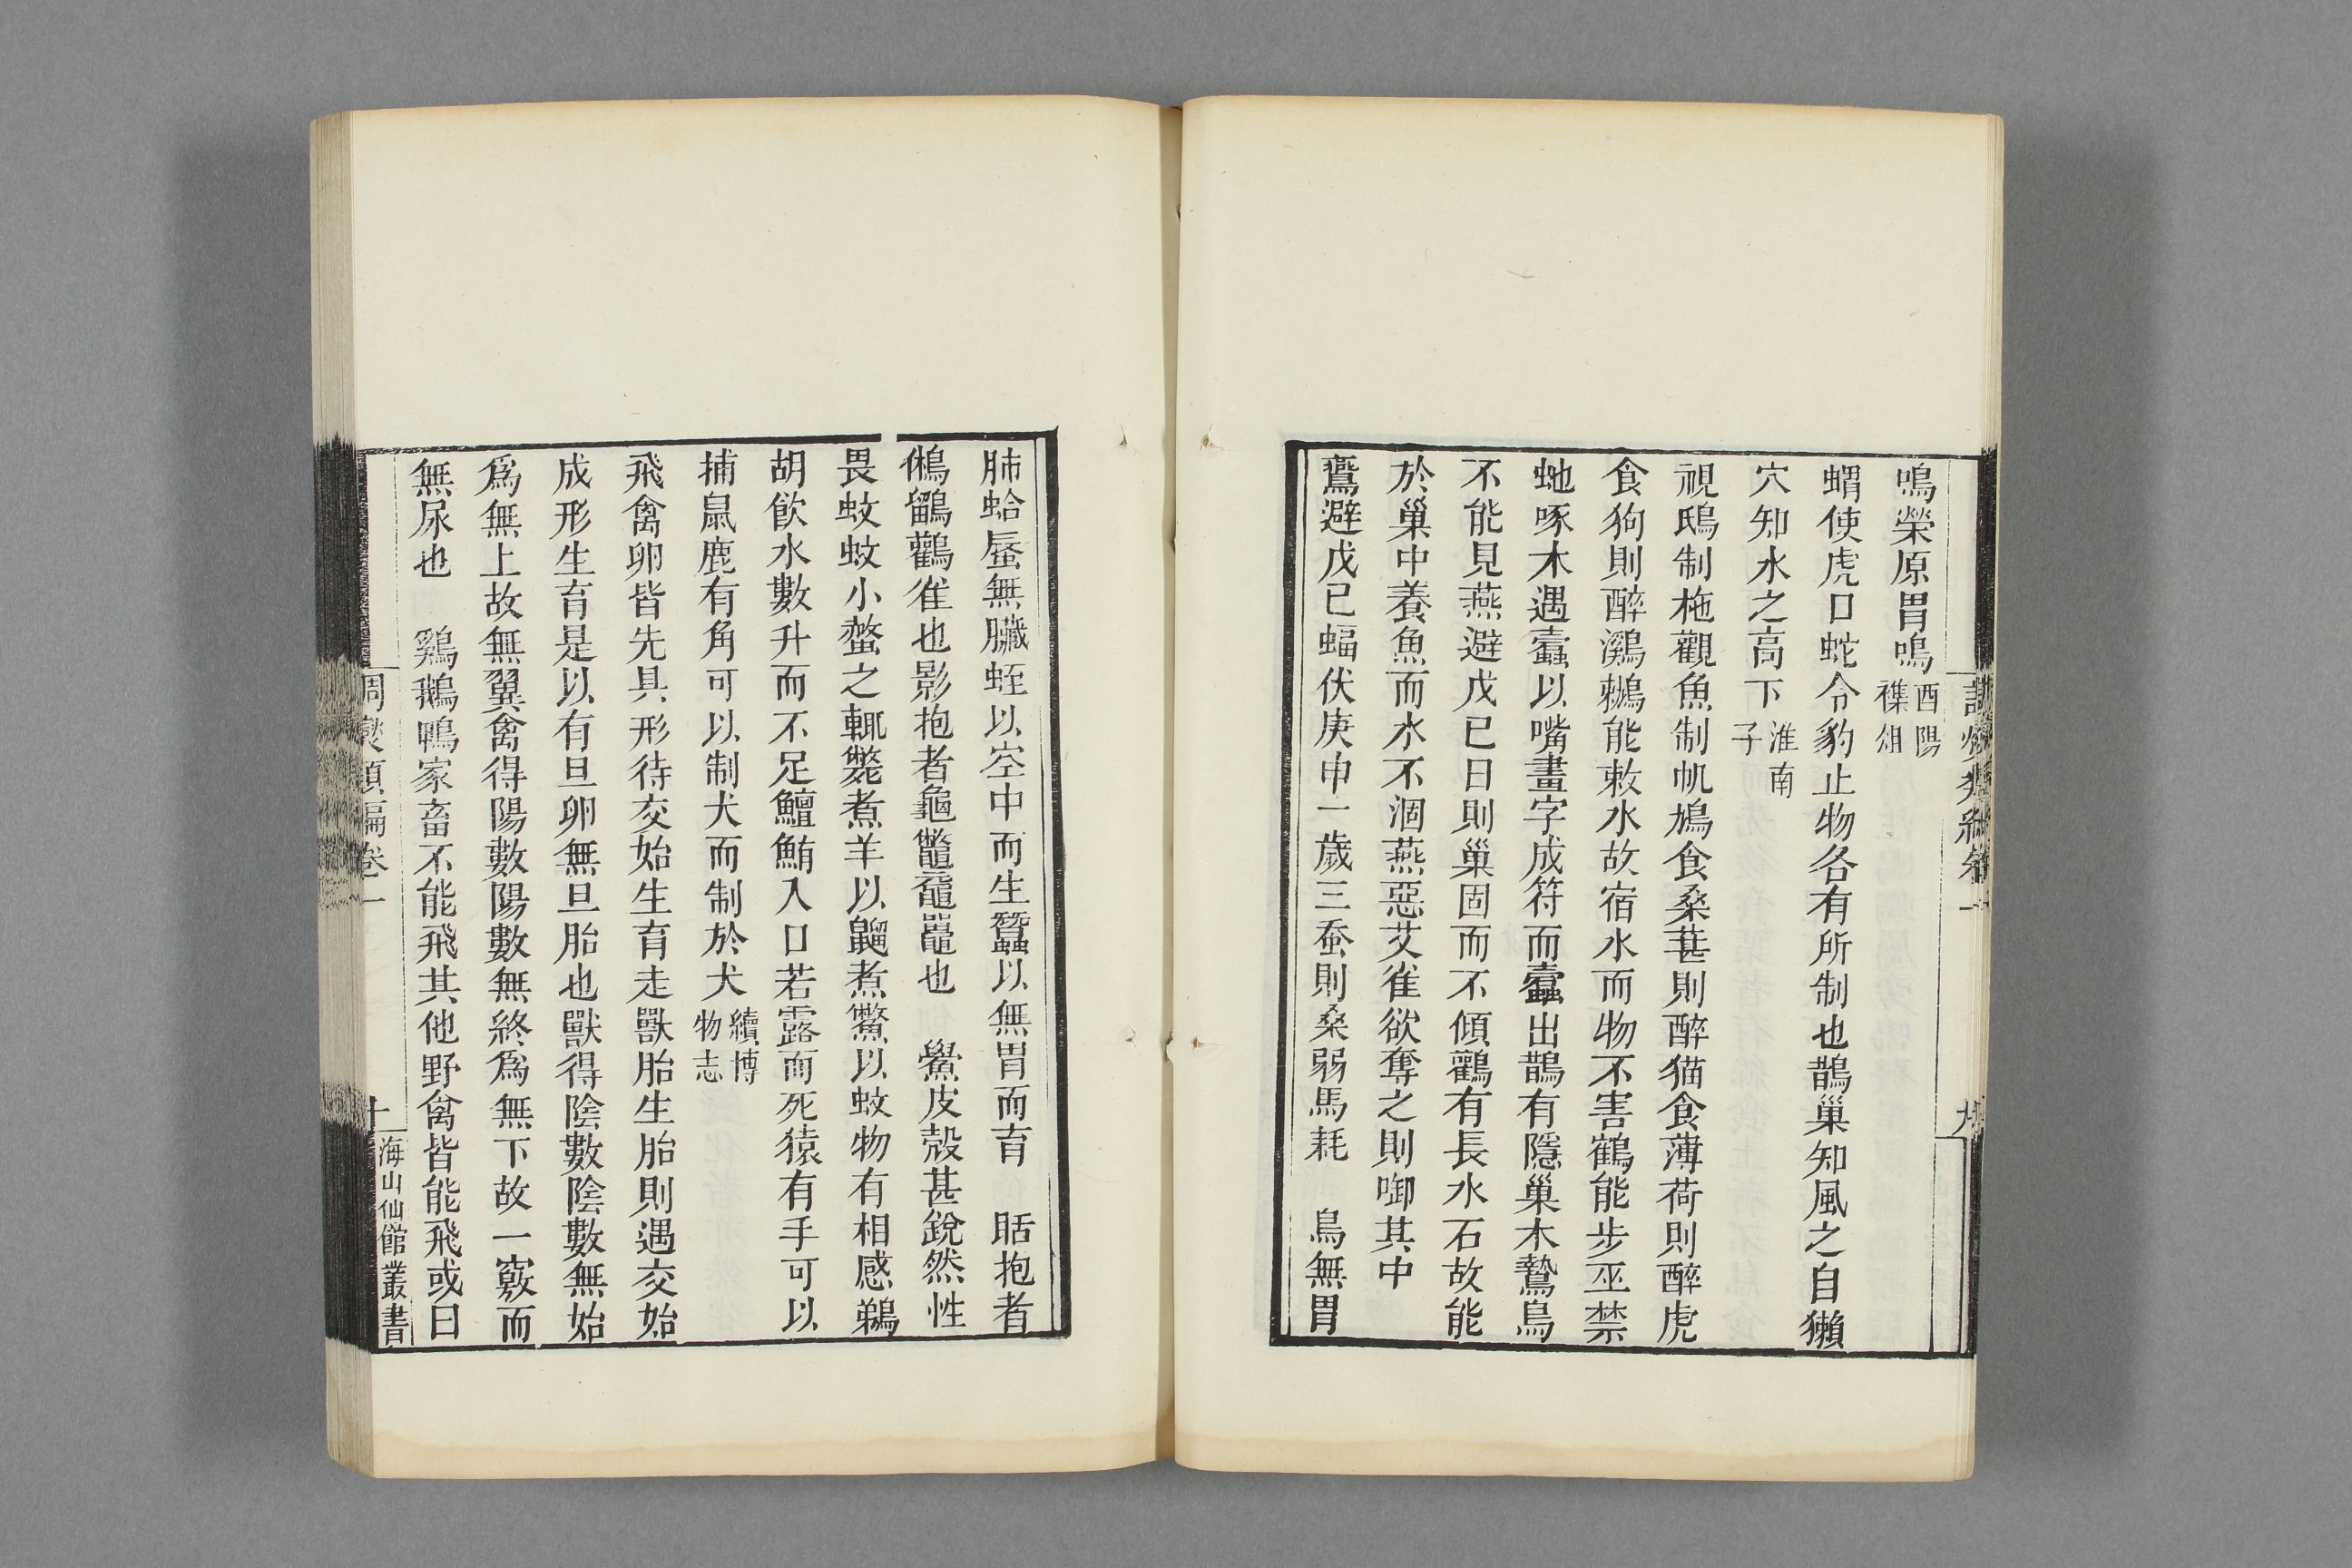 鳴榮原胃鳴酉陽襍俎
蝟使虎口蛇令豹止物各有所制也鵲巢知風之自獺
穴知水之高下淮南子
視鴟制柂觀魚制帆鳩食桑葚則醉猫食薄荷則醉虎
食狗則醉鸂鶒能敕水故宿水而物不害鶴能步巫禁
虵啄木遇蠹以嘴畫字成符而蠹出鵲有隱巢木鷙鳥
不能見燕避戊巳日則巢固而不傾鸛有長水石故能
於巢中養魚而水不涸燕惡艾雀欲奪之則啣其中
鷰避戊巳蝠伏庚申一歲三蚕則桑弱馬耗　鳥無胃
肺蛤蜃無臟蛭以空中而生蠶以無胃而育　聒抱者
鵂鶹鸛雀也影抱者龜鼈黿鼉也　鱟皮殼甚銳然性
畏蚊蚊小螫之輒斃煮羊以鼺煮鱉以蚊物有相感鵜
胡飲水數升而不足鱣鮪入口若露而死猿有手可以
捕鼠鹿有角可以制犬而制於犬續博物志
飛禽卵皆先具形待交始生育走獸胎生胎則遇交始
成形生育是以有旦卵無旦胎也獸得陰數陰數無始
爲無上故無翼禽得陽數陽數無終爲無下故一竅而
無尿也　鷄鵝鴨家畜不能飛其他野禽皆能飛或曰
卷一
十
海山仙館叢書